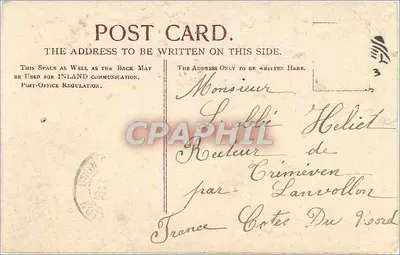 POST CARD.
THE ADDRESS TO BE WRITTEN ON THIS SIDE.
THIS SPACE AS WELL AS THE BACK MAY
BE USED FOR INLAND COMMUNICATION.
POST-OFFICE REGULATION.
THE ADDRESS ONLY TO BE WRITTEN HERE.
Monsieur
L'abbé Heliet
Recteur de
Tréméven
par Lanvollon
France Cotes Du Nord
CPAPHIL